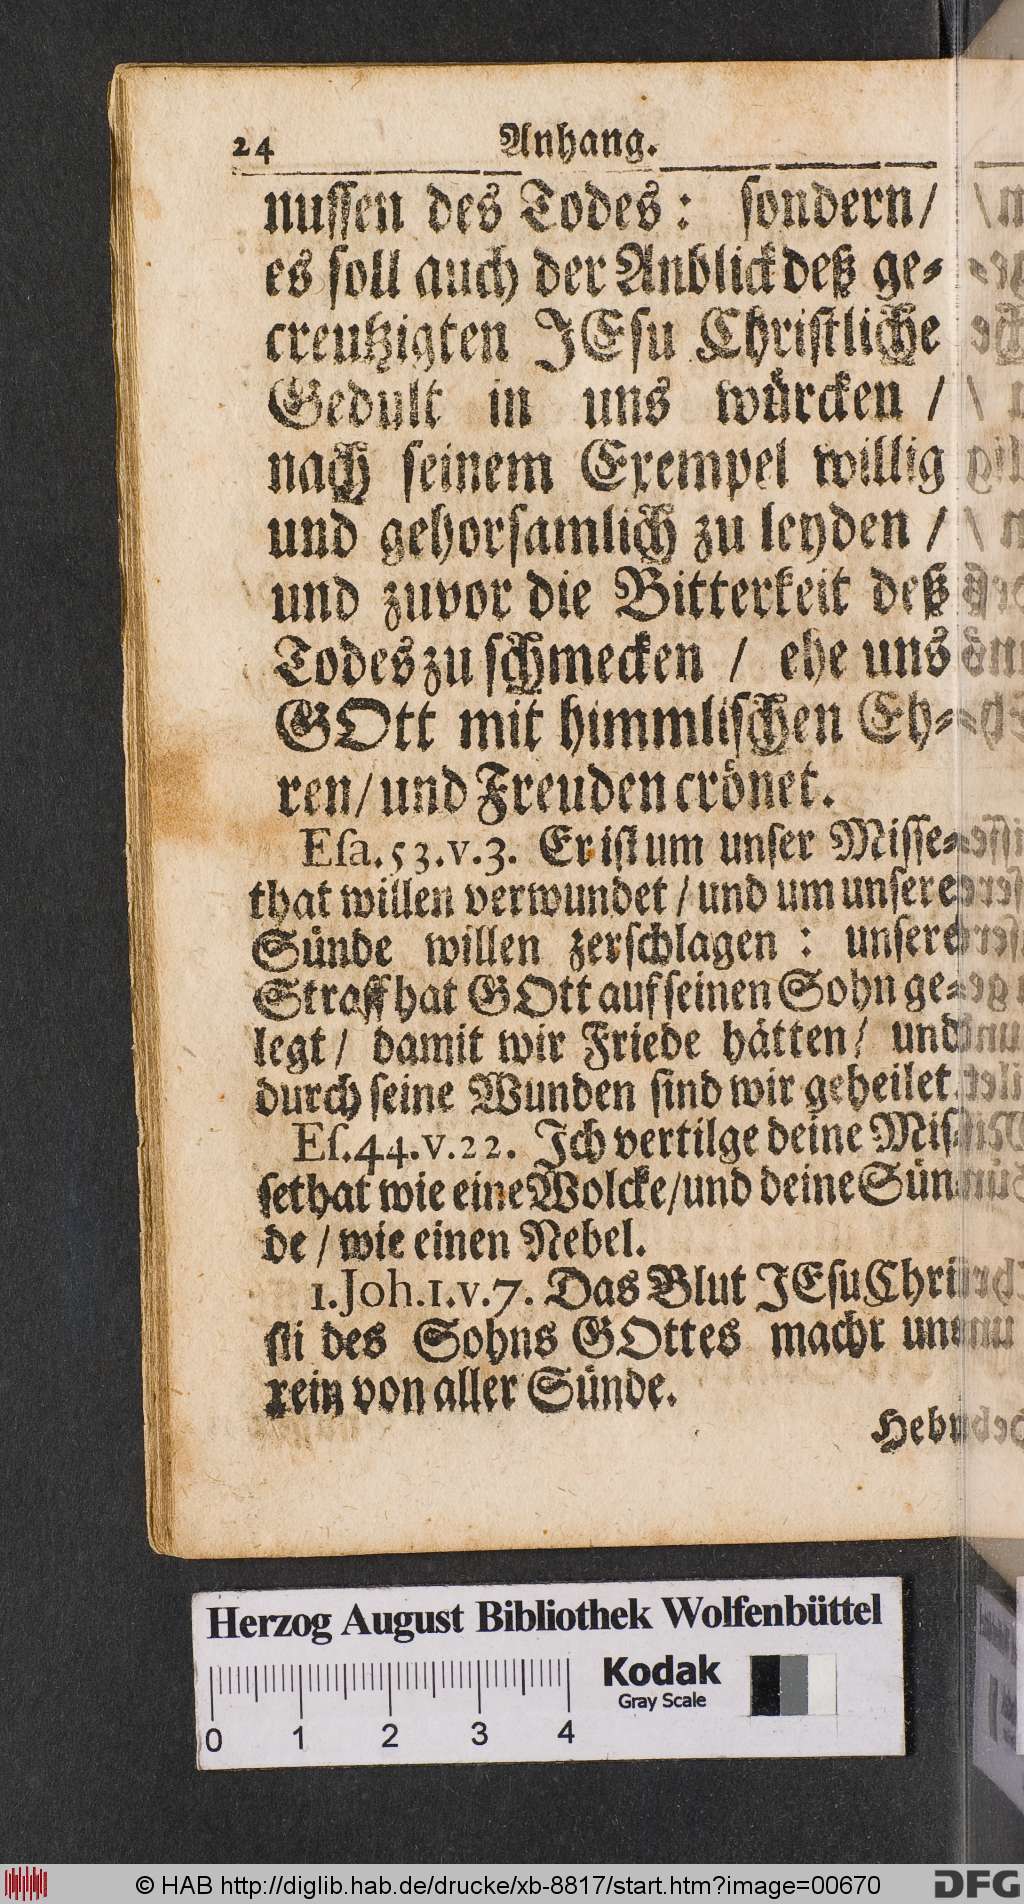 24 Anhang.
nussen des Todes: sondern/
es soll auch der Anblick deß ge-
creutzigten JEsu Christliche
Gedult in uns würcken /
nach seinem Exempel willig
und gehorsamlich zu leyden /
und zuvor die Bitterkeit deß
Todes zu schmecken / ehe uns
GOtt mit himmlischen Eh-
ren/ und Freuden crönet.
Esa. 53. v. 3. Er ist um unser Misse-
that willen verwundet / und um unsere
Sünde willen zerschlagen : unsere
Straff hat GOtt auf seinen Sohn ge-
legt/ damit wir Friede hätten/ und
durch seine Wunden sind wir geheilet.
Es. 44. v. 22. Ich vertilge deine Mis-
sethat wie eine Wolcke/und deine Sün-
de / wie einen Nebel.
1. Joh. 1. v. 7. Das Blut JEsu Chri-
sti des Sohns GOttes machr
rein von aller Sünde.
Herzog August Bibliothek Wolfenbüttel
Kodak
Gray Scale
0 1 2 3 4
© HAB http://diglib.hab.de/drucke/xb-8817/start.htm?image=00670
DFG